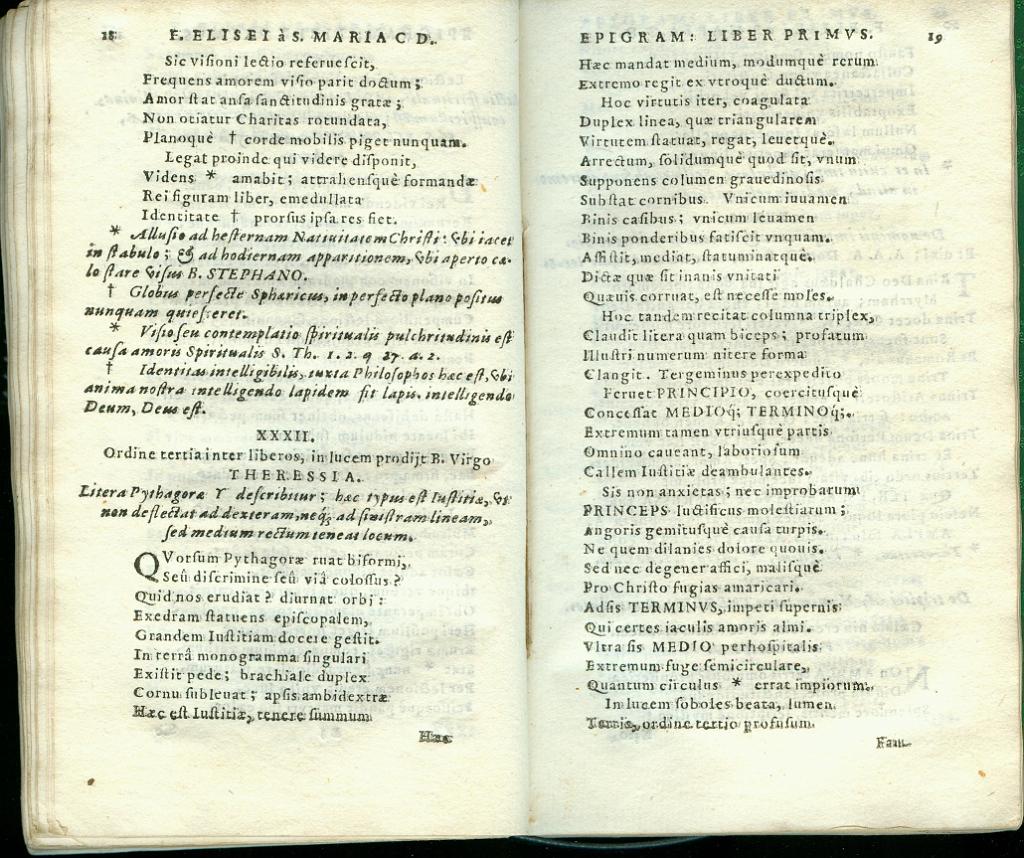 18 F. ELISEI à S. MARIA C D.
Sic visioni lectio referuescit,
Frequens amorem visio parit doctum;
Amor stat ansa sanctitudinis gratæ;
Non otiatur Charitas rotundata,
Planoquè † corde mobilis piget nunquam.
Legat proinde qui videre disponit,
Videns * amabit; attrahensquè formandæ
Rei figuram liber, emedullata
Identitate † prorsus ipsa res fiet.
* Allusio ad hesternam Natiuitatem Christi: vbi iacet
in stabulo; & ad hodiernam apparitionem, vbi aperto cæ-
lo stare visus B. STEPHANO.
† Globus perfecte Sphæricus, in perfecto plano positus
nunquam quiesceret.
* Visio seu contemplatio spiritualis pulchritudinis est
causa amoris Spiritualis S. Th. 1. 2. q 27. a. 2.
† Identitas intelligibilis, iuxta Philosophos hæc est, vbi
anima nostra intelligendo lapidem fit lapis. intelligendo
Deum, Deus est.
XXXII.
Ordine tertia inter liberos, in lucem prodijt B. Virgo
THERESSIA.
Litera Pythagoræ Y describitur; hæc typus est Iustitiæ, vt
non deflectat ad dexteram, neq; ad sinistram lineam,
sed medium rectum teneat locum.
QVorsum Pythagoræ ruat biformi,
Seû discrimine seû viâ colossus?
Quid nos erudiat? diurnat orbi:
Exedram statuens episcopalem,
Grandem Iustitiam docere gestit.
In terrâ monogramma singulari
Existit pede; brachiale duplex
Cornu subleuat; apsis ambidextræ
Hæc est Iustitiæ, tenere summum
Hæc
EPIGRAM: LIBER PRIMVS. 19
Hæc mandat medium, modumquè rerum
Extremo regit ex vtroquè ductum.
Hoc virtutis iter, coagulata
Duplex linea, quæ triangularem
Virtutem statuat, regat, leuetquè.
Arrectum, solidumquè quod sit, vnum
Supponens columen grauedinosis
Substat cornibus. Vnicum iuuamen
Binis casibus; vnicum leuamen
Binis ponderibus fatiscit vnquam.
Assistit, mediat, statuminatquè.
Dictæ quæ sit inanis vnitati
Quæuis corruat, est necesse moles.
Hoc tandem recitat columna triplex,
Claudit litera quam biceps; profatum
Illustri numerum nitere forma
Clangit. Tergeminus perexpedito
Feruet PRINCIPIO, coercitusquè
Concessat MEDIOq́; TERMINOq́;.
Extremum tamen vtriusquè partis
Omnino caueant, laboriosum
Callem Iustitiæ deambulantes.
Sis non anxietas; nec improbarum
PRINCEPS Iustificus molestiarum;
Angoris gemitusquè causa turpis.
Ne quem dilanies dolore quouis.
Sed nec degener affici, malisquè
Pro Christo fugias amaricari.
Adsis TERMINVS, impeti supernis
Qui certes iaculis amoris almi.
Vltra sis MEDIO perhospitalis
Extremum fuge semicirculare,
Quantum circulus * errat impiorum.
In lucem soboles beata, lumen
Tertia, ordine tertio profusum.